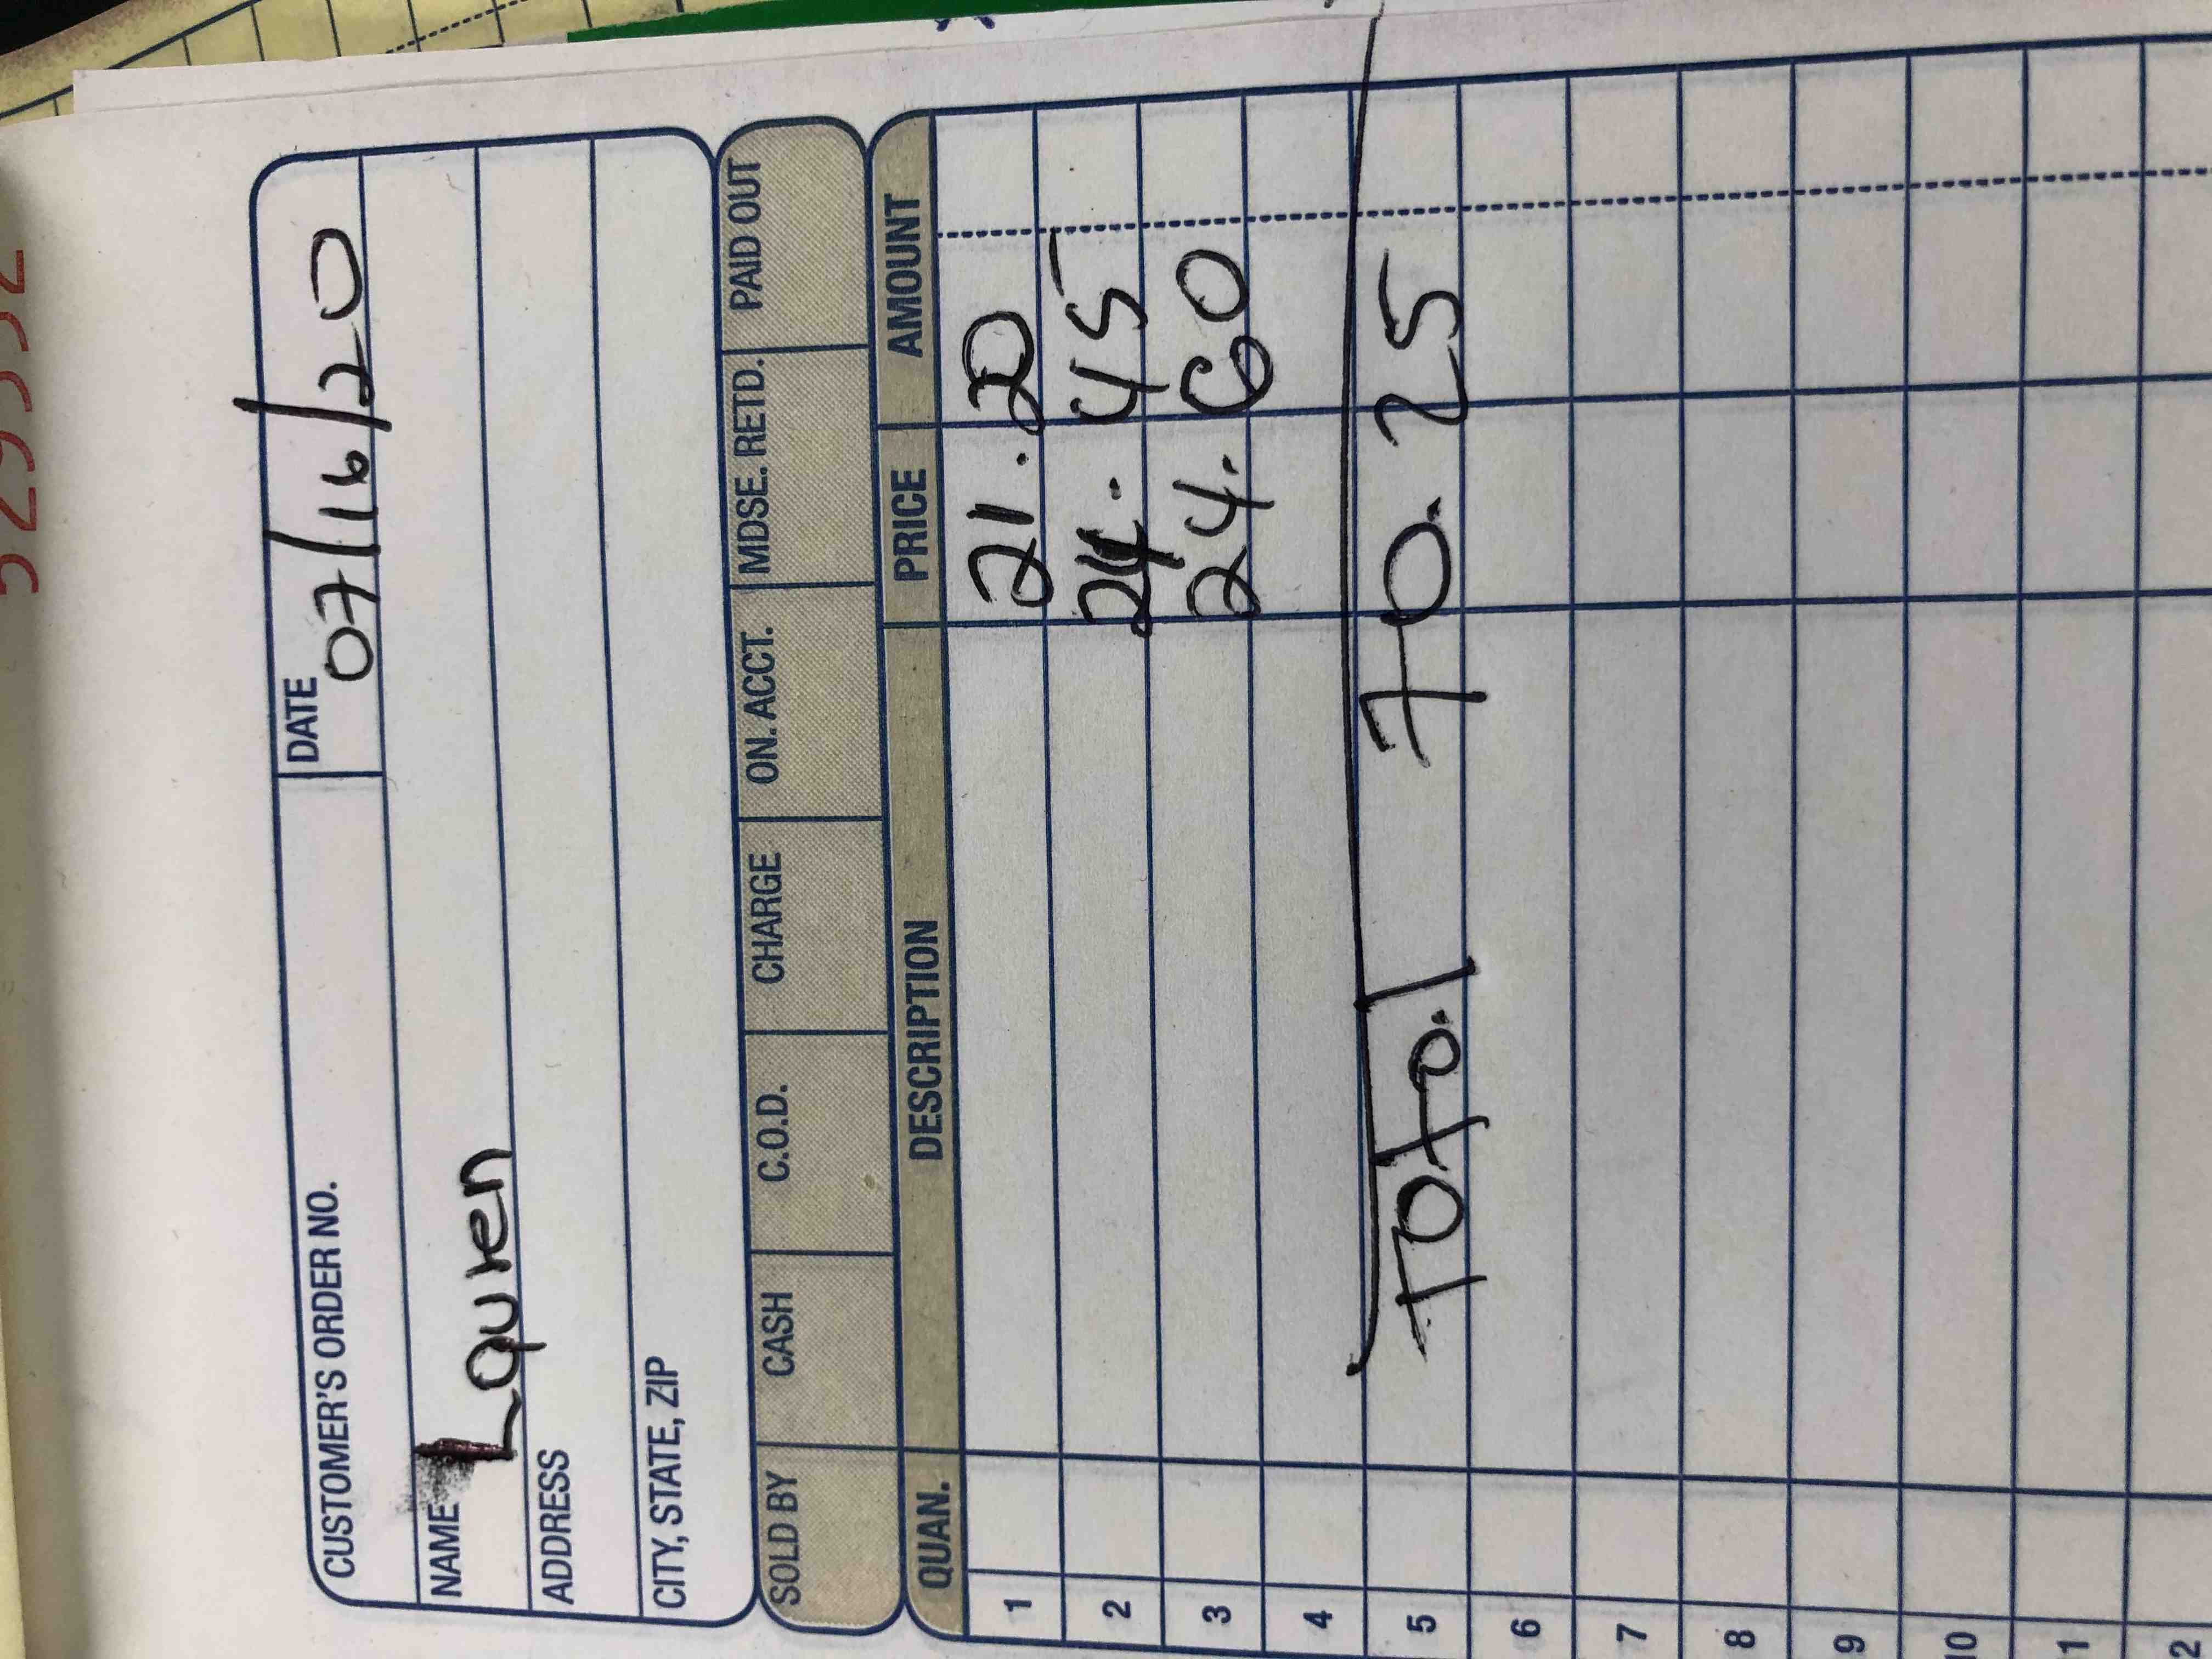 CUSTOMER'S ORDER NO. DATE 07/16/20
NAME Lauren
ADDRESS
CITY, STATE, ZIP
SOLD BY CASH C.O.D. CHARGE ON. ACCT. MDSE. RETD. PAID OUT
QUAN. DESCRIPTION PRICE AMOUNT
1 21.20
2 24.45
3 24.60
4
5 Total 70.25
6
7
8
9
10
1
2